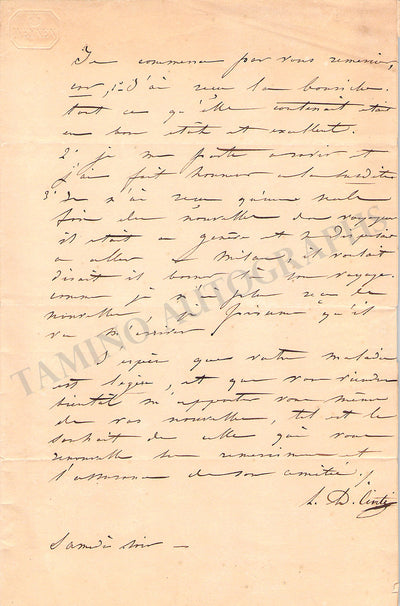 Je commence par vous remercier,
car, 1º J'ai reçu la bourriche.
tout ce qu'elle contenait était
en bon état et excellent.
2º je me porte à ravir et
j'ai fait honneur à la susdite
3º Je n'ai reçu qu'une seule
fois des nouvelles du voyageur
il était à Genève et se disposait
à aller à Milan et voulait
disait il borner là son voyage.
comme je n'ai plus reçu de
nouvelles je présume qu'il
va m'arriver
J'espère que votre maladie
est légère, et que vous viendrez
bientôt m'apporter vous même
de vos nouvelles, tel est le
souhait de celle qui vous
renouvelle ses remerciements et
l'assurance de son amitié.
L. D. Cinti
Samedi soir —
TAMINO AUTOGRAPHS